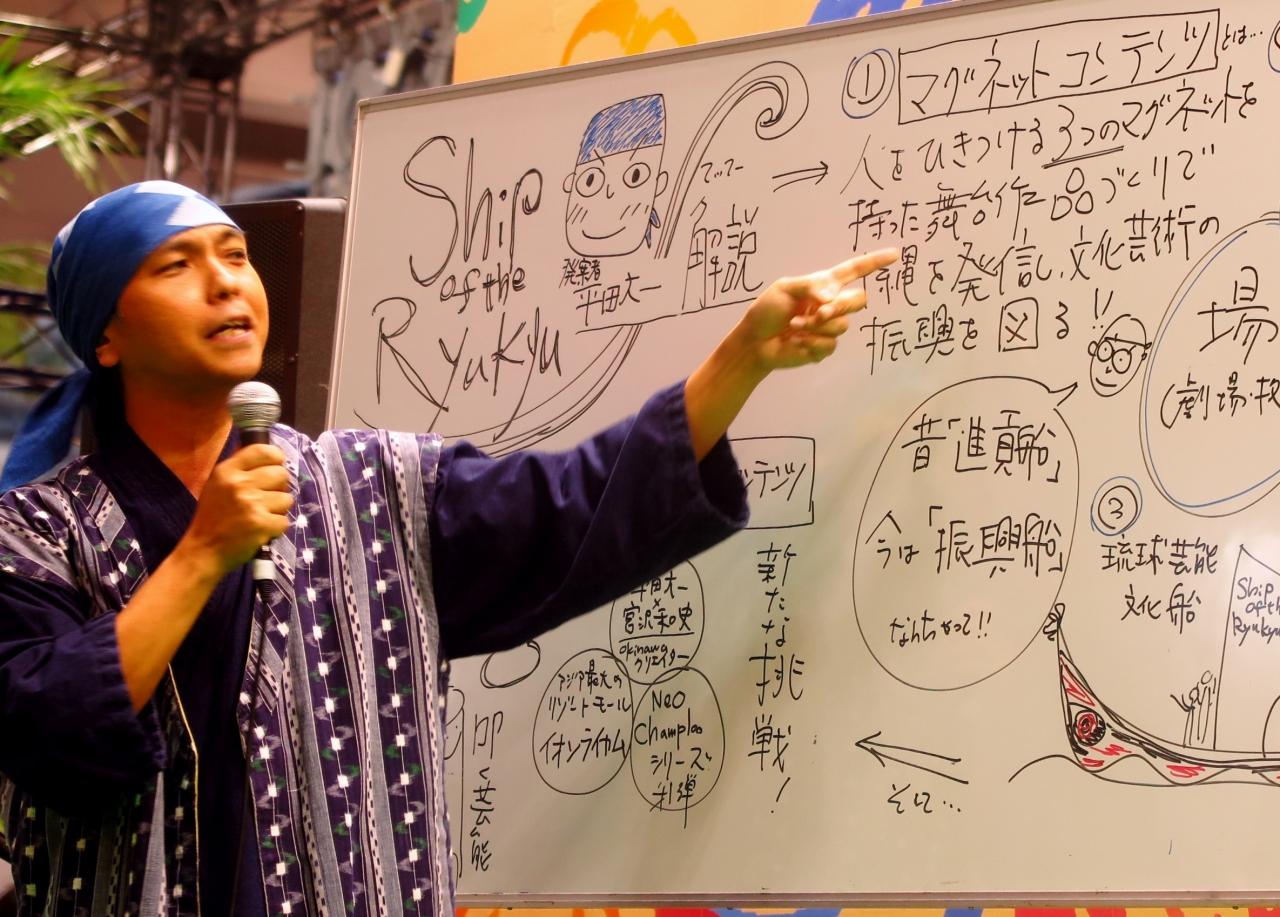 Ship
of the
Ryukyu
発案者
平田大一
てってー
解説
① マグネットコンテンツとは…
人をひきつける3つのマグネットを
持った舞台作品づくりで
縄を発信し、文化芸術の
振興を図る!!
昔「進貢船」
今は「振興船」
なんちゃって!!
場
(劇場・
③
琉球芸能
文化船
Ship
of the
Ryukyu
そして…
ンテンツ
新たな挑戦!
平田大一
×
宮沢和史
okinawa
クリエイター
アジア最大の
リゾートモール
イオンライカム
Neo
Champloo
シリーズ
芸能